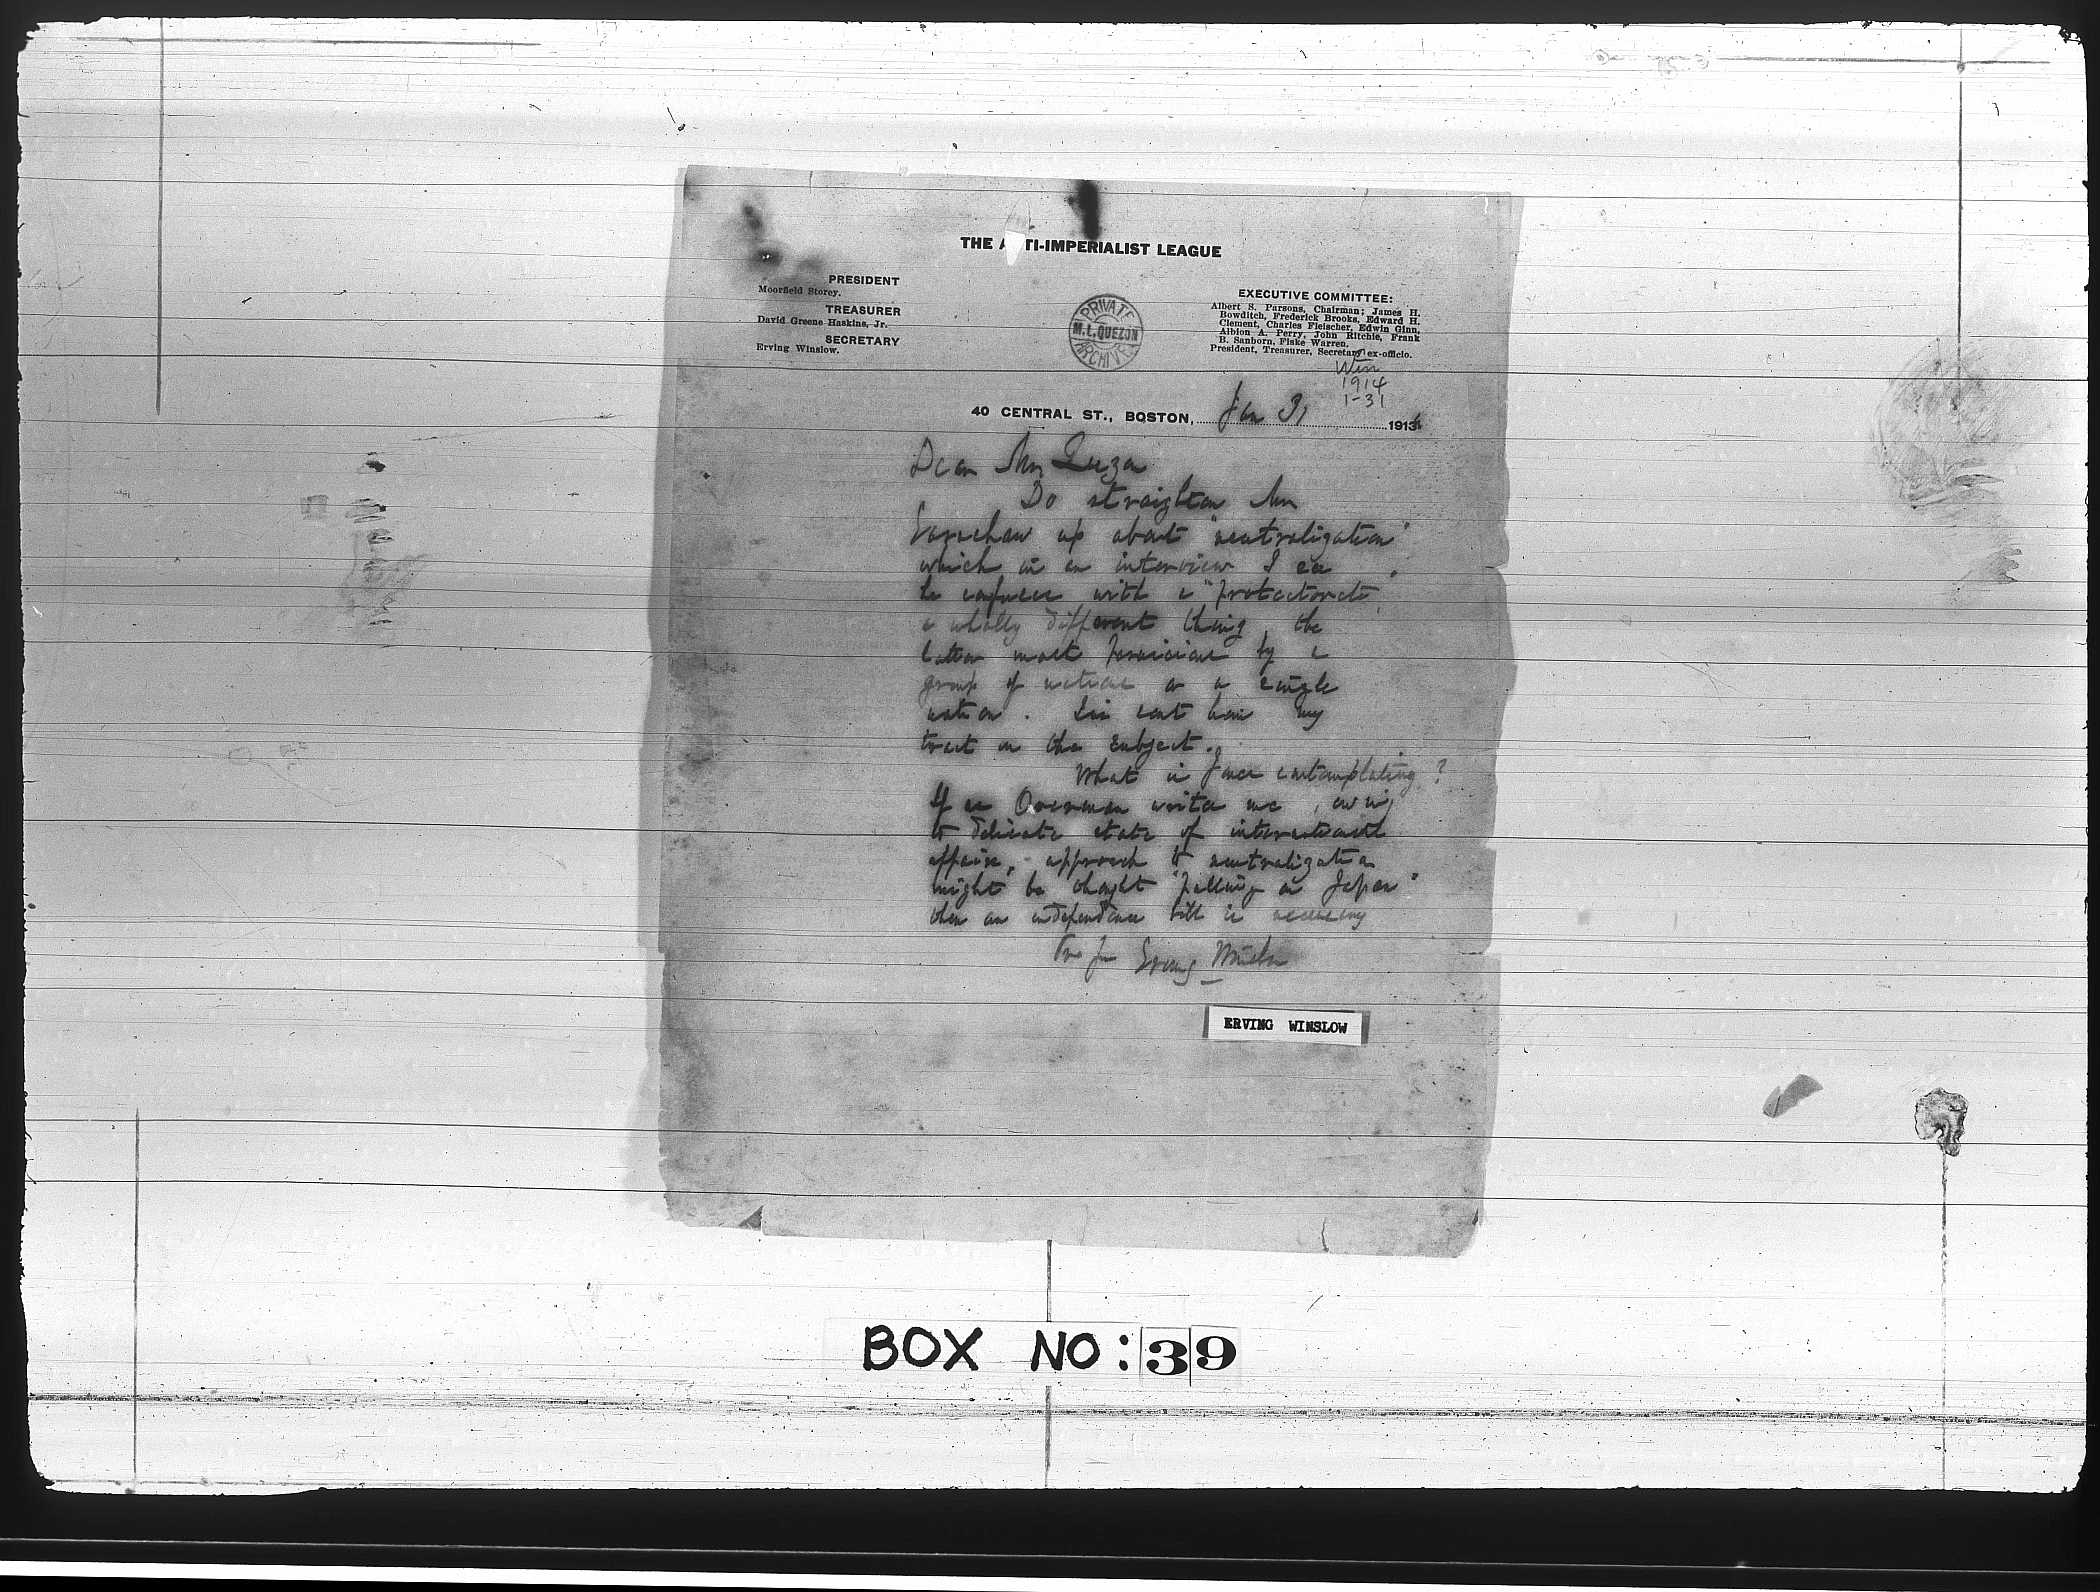 THE A TI-IMPERIALIST LEAGUE
PRESIDENT
Moorfield Storey.
TREASURER
David Greene Haskins, Jr.
SECRETARY
Erving Winslow.
PRIVATE
M.L.QUEZON
ARCHIVE
EXECUTIVE COMMITTEE:
Albert S. Parsons, Chairman; James H.
Bowditch, Frederick Brooks, Edward H.
Clement, Charles Fleischer, Edwin Ginn,
Albion A. Perry, John Ritchie, Frank
B. Sanborn, Fiske Warren.
President, Treasurer, Secretary ex-officio.
Win
1914
1-31
40 CENTRAL ST., BOSTON, Jan 31 1914
Dear Mr Quezon
Do straighten Mr
up about "neutralization"
which in an interview I see
he confuses with a "protectorate",
a wholly different thing, the
latter most pernicious by a
group of nations or a single
nation. sent him my
tract on the subject.
What is Jones contemplating?
If as Overman writes me, owing
to delicate state of international
affairs, approach to neutralization
might be thought "pulling on Japan"
then an independence bill is necessary
Erving Winslow
ERVING WINSLOW
BOX NO: 39